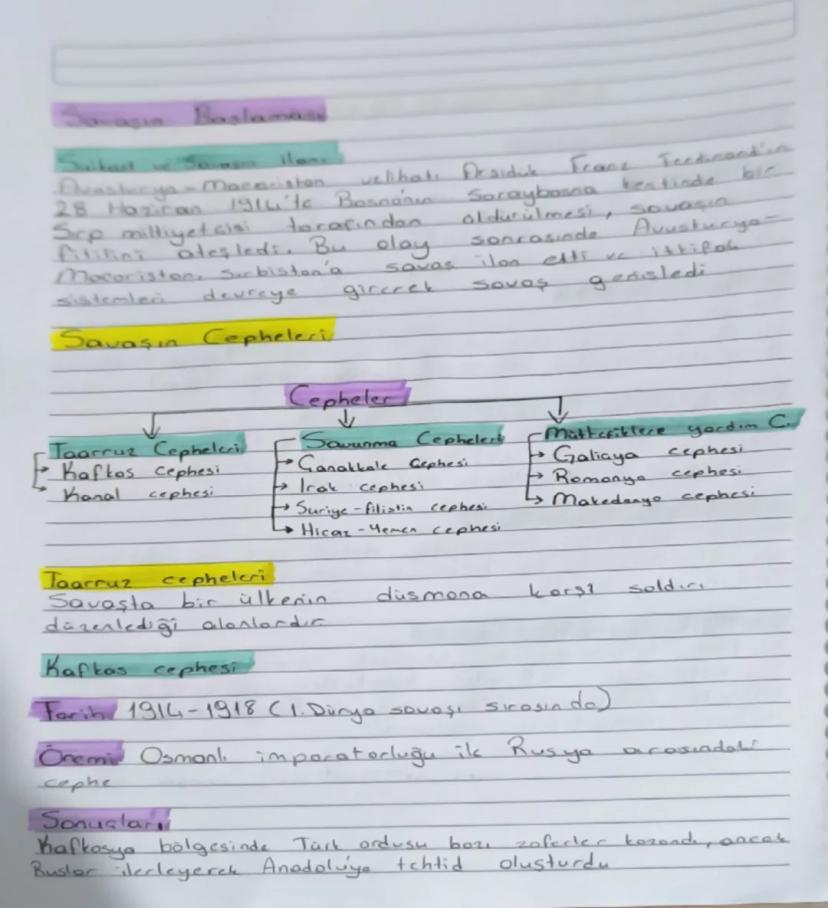 Savaşın Başlaması
Suikast ve Savaşın ilanı
Avusturya-Macaristan velihatı Arşidük Franz Ferdinand'ın
28 Haziran 1914'te Bosna'nın Saraybosna kentinde bir
Sırp milliyetçisi tarafından öldürülmesi, savaşın
fitilini ateşledi. Bu olay sonrasında Avusturya-
Macaristan, Sırbistan'a savaş ilan etti ve ittifak
sistemleri devreye girerek savaş genişledi
Savaşın Cepheleri
Cepheler
Taarruz Cepheleri
Kafkas cephesi
Kanal cephesi
Savunma Cepheleri
Çanakkale Cephesi
Irak cephesi
Suriye-filistin cephesi
Hicaz-Yemen cephesi
Müttefiklere yardım C.
Galiçya cephesi
Romanya cephesi
Makedonya cephesi
Taarruz cepheleri
Savaşta bir ülkenin düşmana karşı saldırı
düzenlediği alanlardır
Kafkas cephesi
Tarih 1914-1918 (1.Dünya savaşı sırasında)
Önemi Osmanlı imparatorluğu ile Rusya arasındaki
cephe
Sonuçları
Kafkasya bölgesinde Türk ordusu bazı zaferler kazandı, ancak
Ruslar ilerleyerek Anadolu'ya tehtid oluşturdu